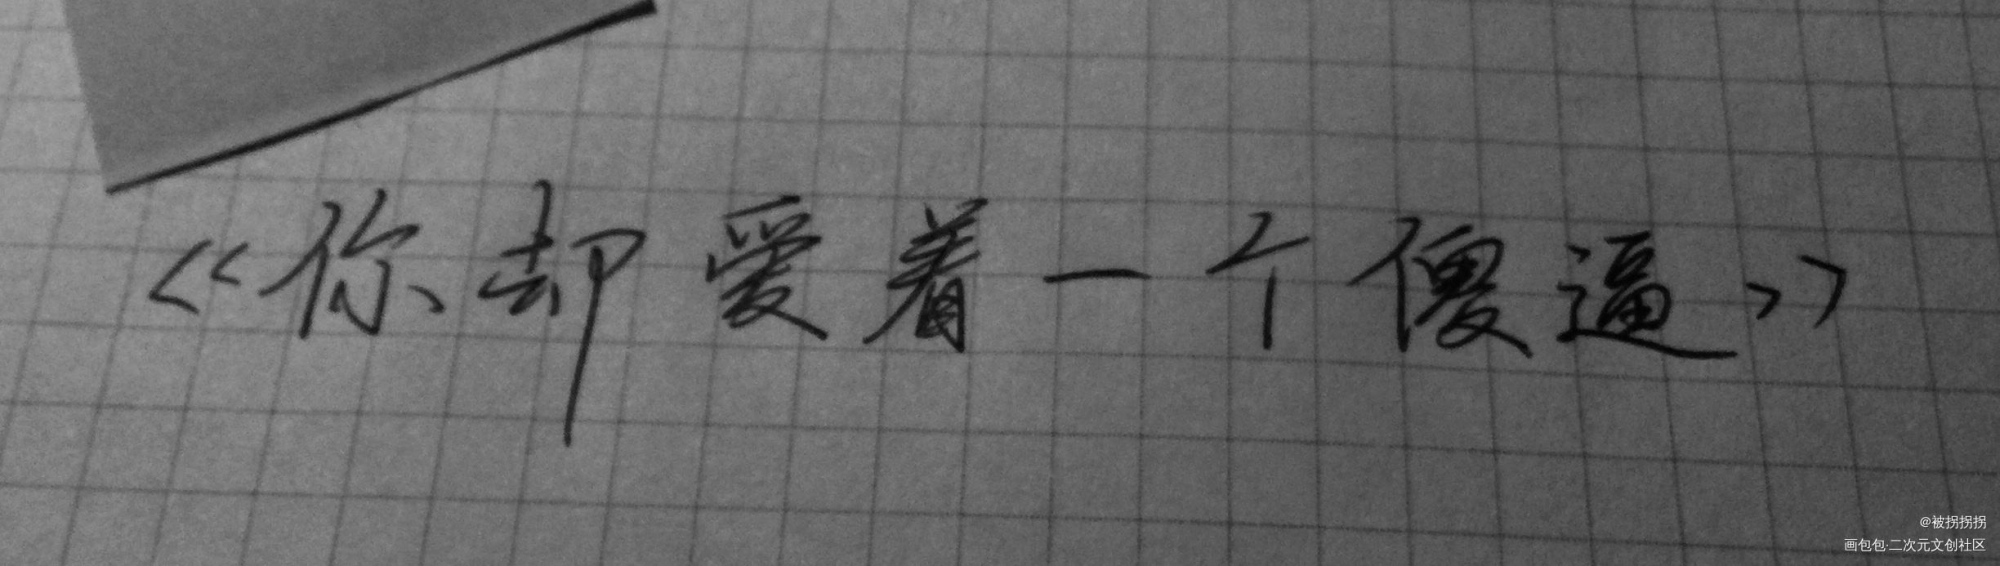 《你却爱着一个傻逼》
@被拐拐拐
画包包·二次元文创社区